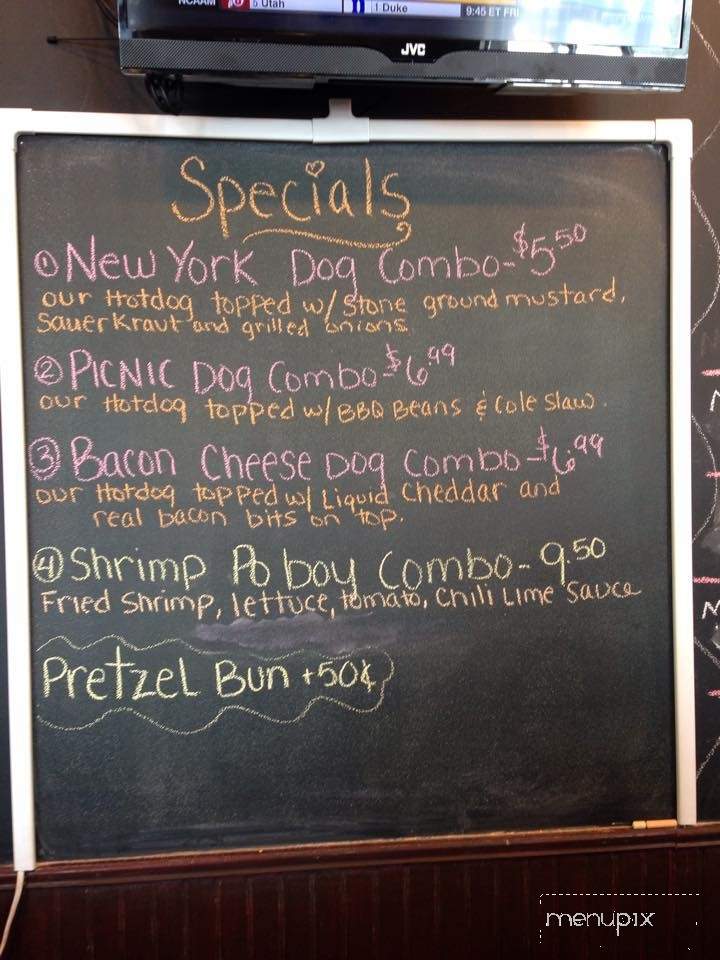 NCAAM 5 Utah 1 Duke 9:45 ET FRI
JVC
Specials
① New York Dog Combo - $5.50
our Hotdog topped w/ Stone ground mustard,
Sauerkraut and grilled onions
② Picnic Dog Combo - $6.99
our Hotdog topped w/ BBQ Beans & Cole Slaw.
③ Bacon Cheese Dog Combo - $6.99
our Hotdog topped w/ Liquid Cheddar and
real bacon bits on top.
④ Shrimp Po boy Combo - 9.50
Fried Shrimp, lettuce, tomato, Chili Lime Sauce
Pretzel Bun +50¢
menupix